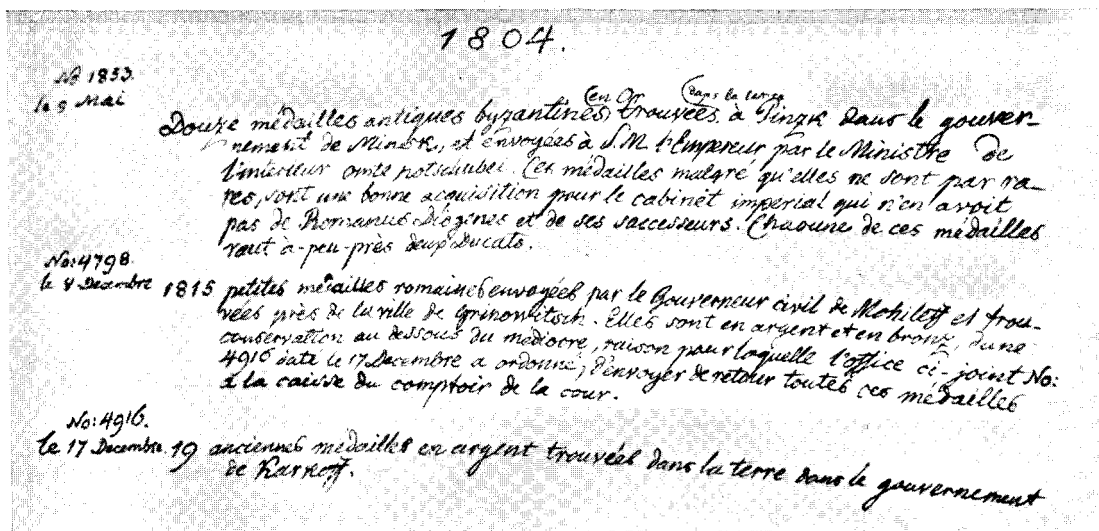 1804.
No 1833.
le 9 Mai
(en Or (dans la terre
Douze médailles antiques byzantines, trouvées à Pinzk dans le gouver-
nement de Minsk, et envoyées à S.M. l'Empereur par le Ministre de
l'interieur Kotschubei. Ces médailles malgré qu'elles ne sont par ra-
res, sont une bonne acquisition pour le cabinet imperial qui n'en avoit
pas de Romanus Diogenes et de ses successeurs. Chacune de ces médailles
vaut à-peu-près deux Ducats.
No: 4798.
le 8 Decembre 1815 petites médailles romaines envoyées par le Gouverneur civil de Mohileff et trou-
vées près de la ville de . Elles sont en argent et en bronz, d'une
conservation au dessous du mediocre, raison pour laquelle l'office ci-joint No:
4916 daté le 17 Decembre a ordonné, d'envoyer de retour toutes ces médailles
à la caisse du comptoir de la cour.
No: 4916.
le 17 Decembre. 19 anciennes médailles en argent trouvées dans la terre dans le gouvernement
de Karkoff.